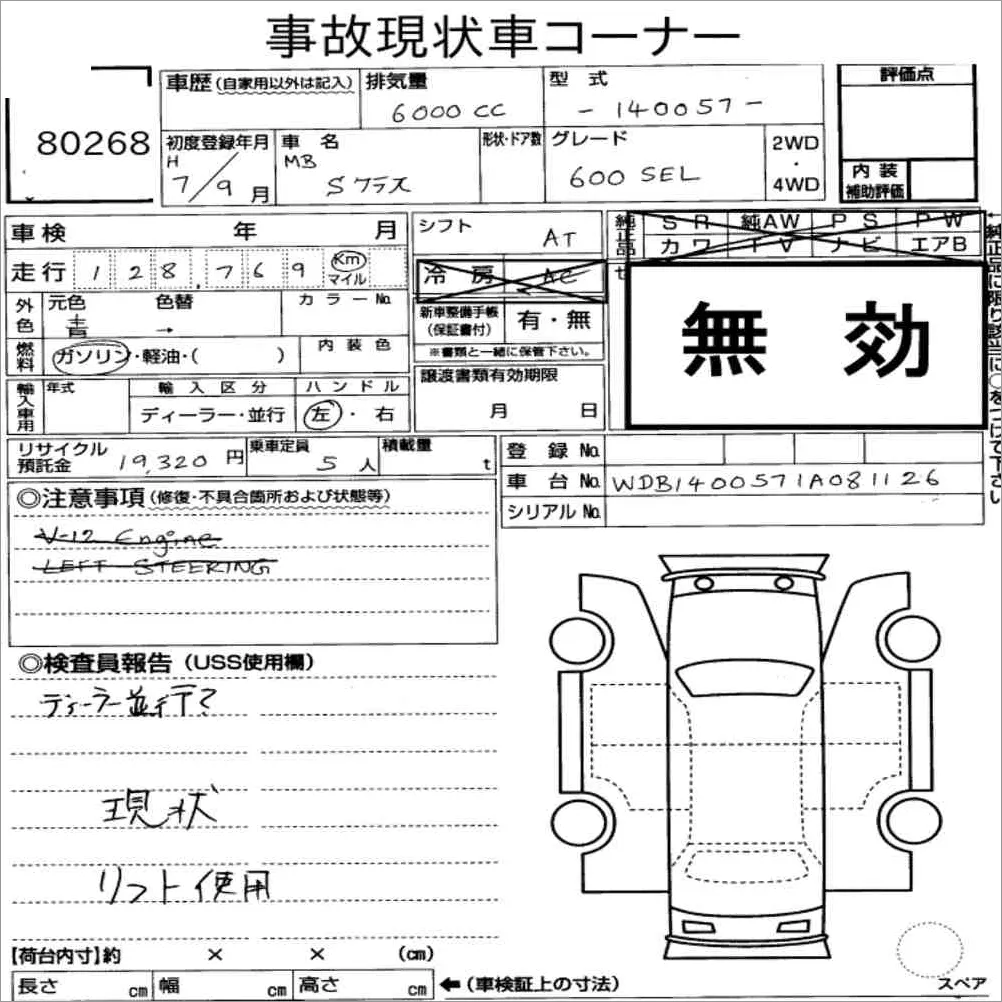 事故現状車コーナー
80268
車歴(自家用以外は記入)
排気量
6000 CC
型 式
- 140057 -
評価点
初度登録年月
H
7/9月
車 名
MB
Sクラス
形状・ドア数
グレード
600 SEL
2WD
・
4WD
内 装
補助評価
車検 年 月
走行 128,769 Km
マイル
シフト
AT
純正品
S R 純AW P S P W
カワ T V ナビ エアB
冷 房 AC
外色
元色 色替
青 →
カラーNo.
新車整備手帳
(保証書付)
有・無
※書類と一緒に保管下さい。
無 効
純正品に限り該当に○をつけて下さい
燃料
ガソリン・軽油・( )
内 装 色
譲渡書類有効期限
月 日
輸入車用
年式
輸 入 区 分
ディーラー・並行
ハ ン ド ル
左・右
リサイクル
預託金
19,320 円
乗車定員
5 人
積載量
t
登 録 No.
車 台 No. WDB1400571A081126
シリアル No.
◎注意事項(修復・不具合箇所および状態等)
V-12 Engine
LEFT STEERING
◎検査員報告(USS使用欄)
ディーラー並行?
現状
リフト使用
【荷台内寸】約 × × (cm)
長さ cm 幅 cm 高さ cm
←(車検証上の寸法)
スペア